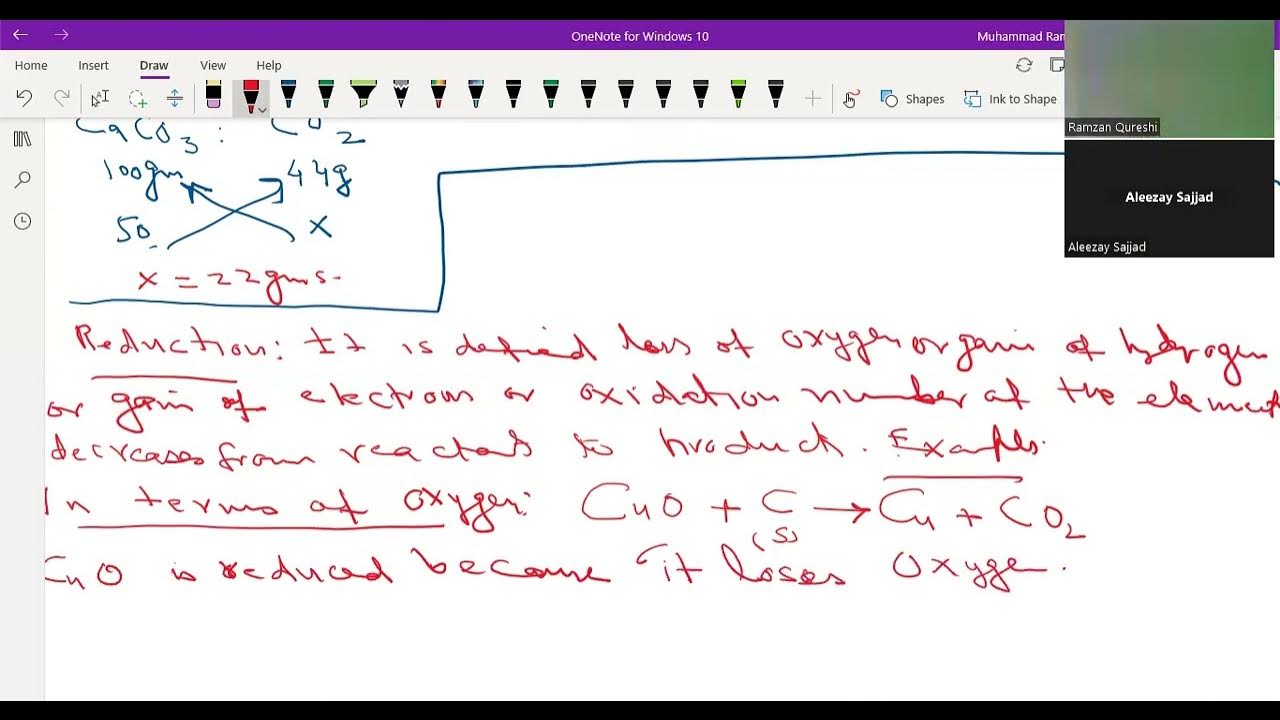 OneNote for Windows 10
Muhammad Ram
Home Insert Draw View Help
Shapes Ink to Shape
Ramzan Qureshi
Aleezay Sajjad
Aleezay Sajjad
CaCO3 : CO2
100gm 44g
50 x
x = 22gms.
Reduction: It is defined loss of oxygen or gain of hydrogen
or gain of electrons or oxidation number of the element
decreases from reactant to product. Example.
In terms of oxygen: CuO + C → Cu + CO2
(s)
CuO is reduced because it loses Oxygen.